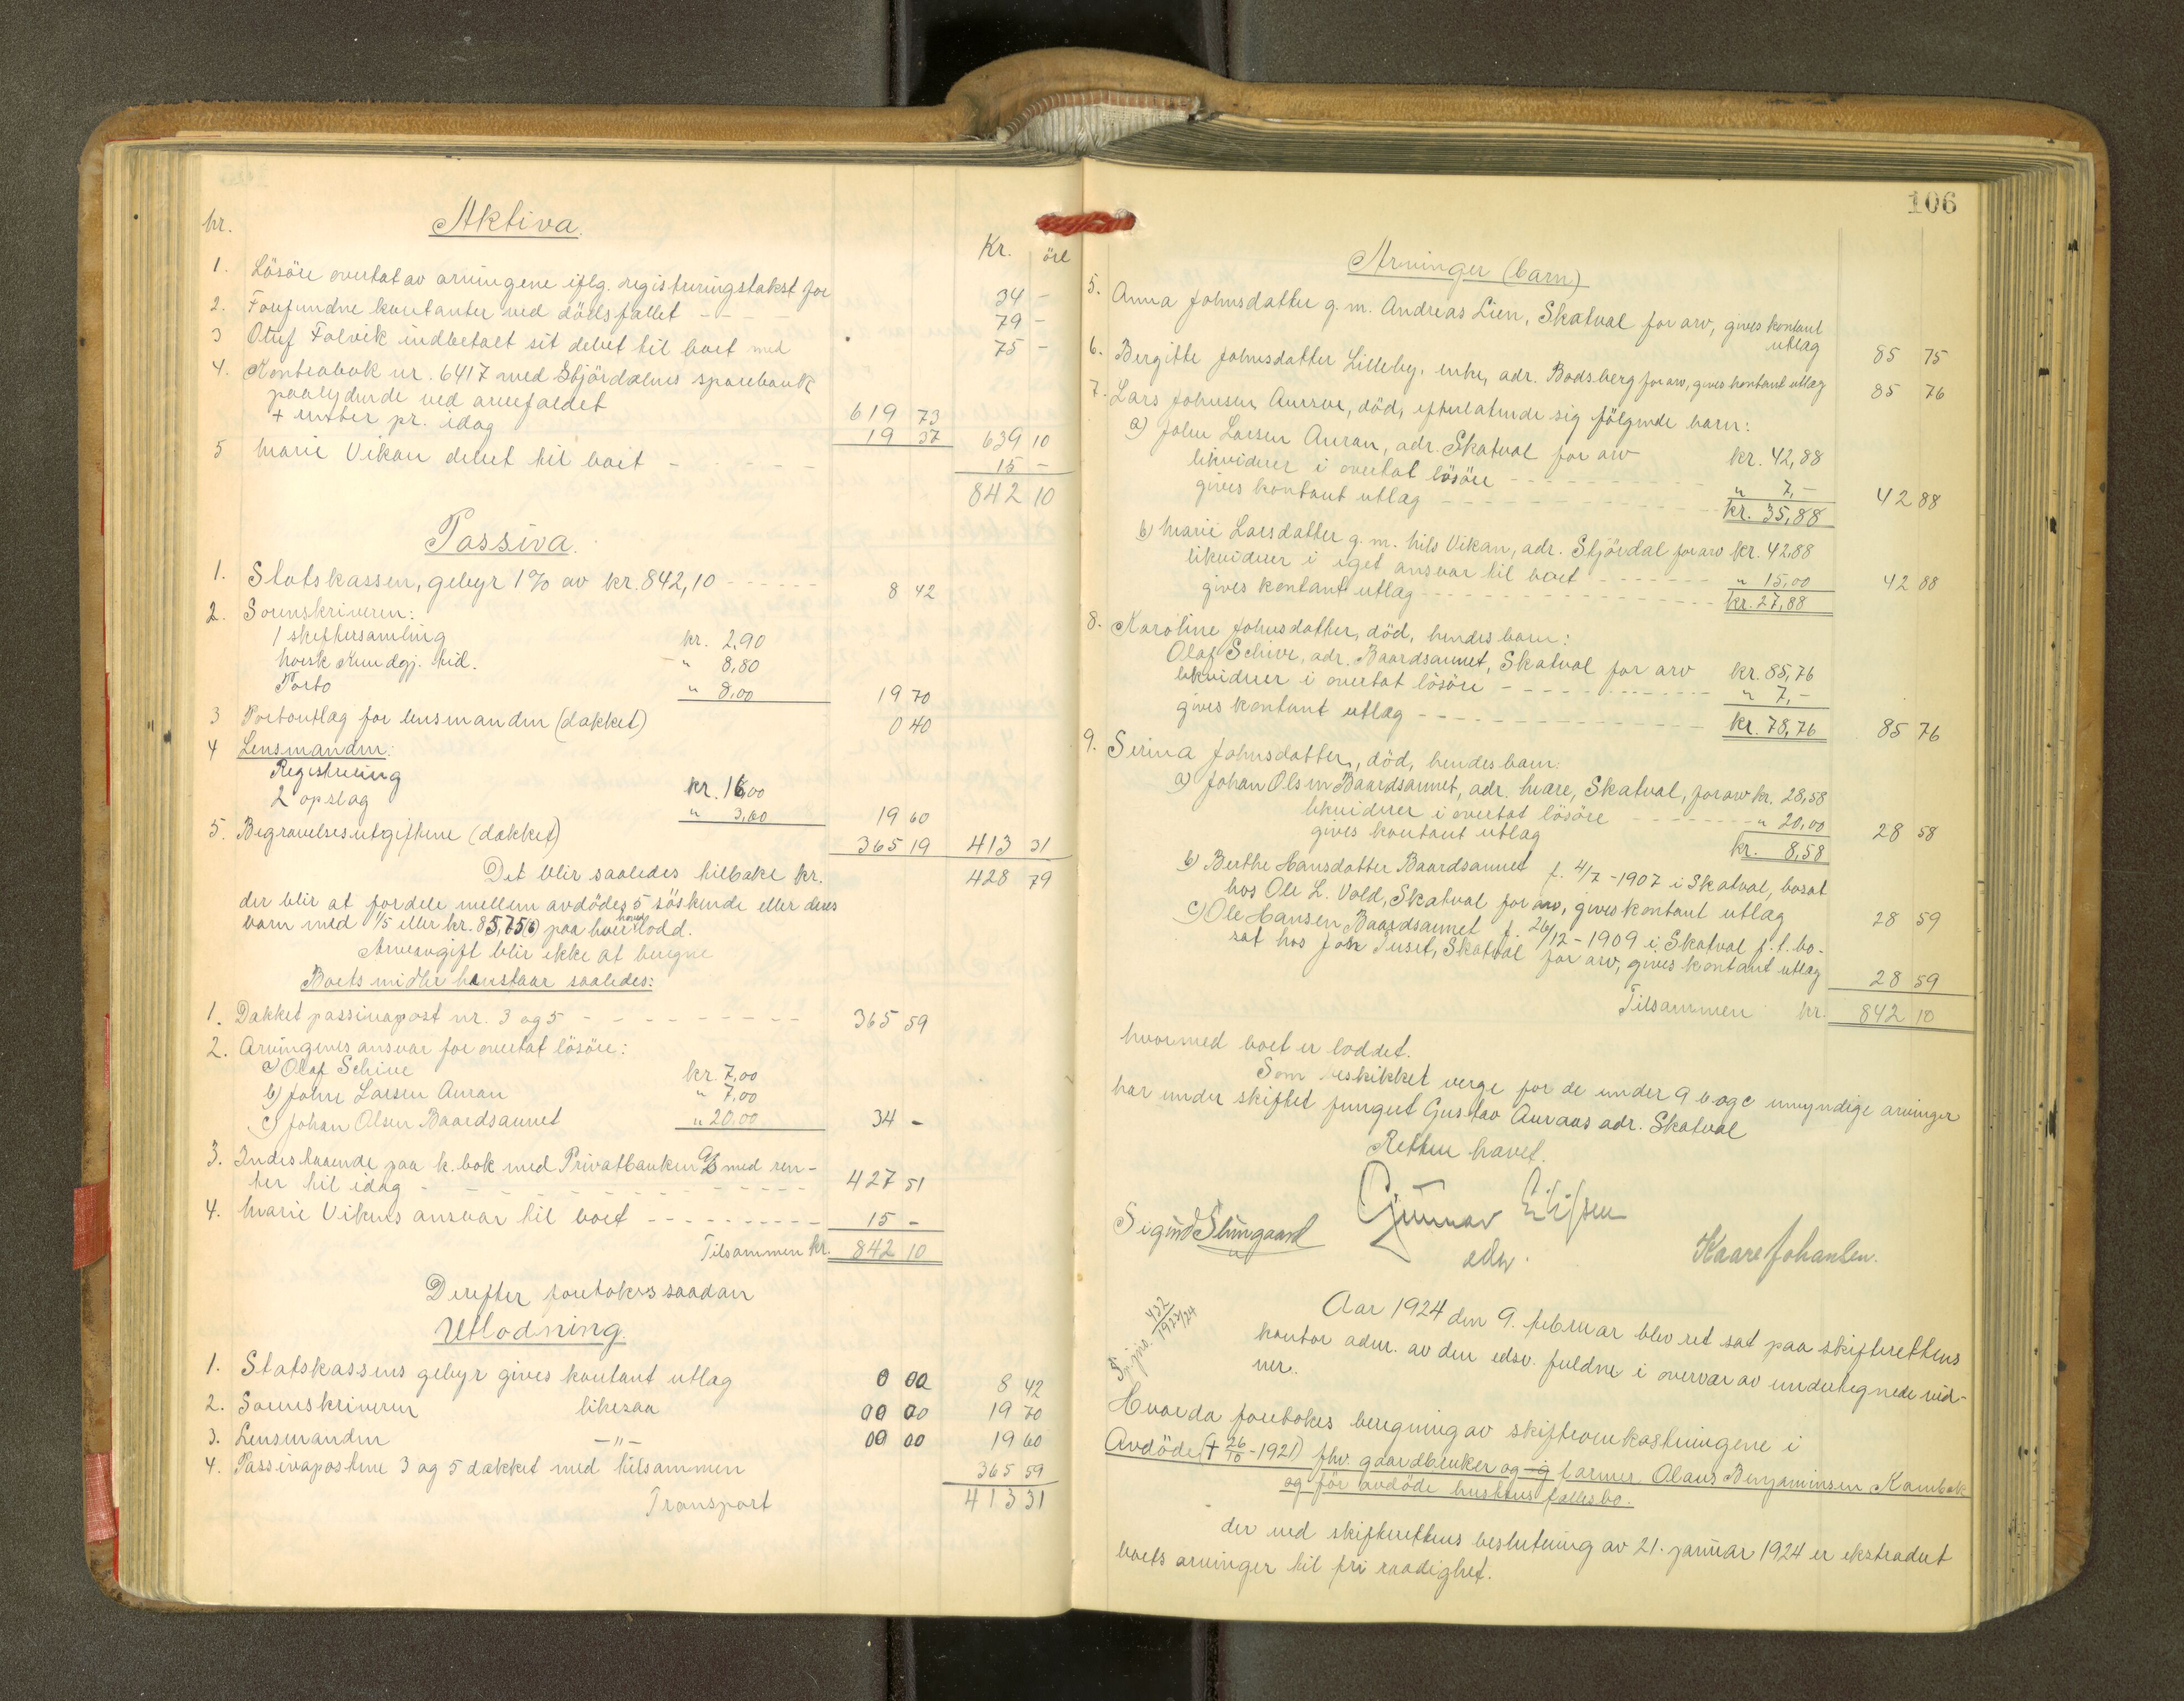 Nr. Aktiva.
Kr. öre
1. Lösöre overtat av arvingene iflg. registreringstakst for 34 -
2. Forefundne kontanter ved dödsfallet - - - - 79 -
3 Oluf Falvik indbetalt sit debet til boet med 75 -
4. Kontrabok nr. 6417 med Stjördalens sparebank
paalydende ved arvefaldet 619 73
+ renter pr. idag 19 37 639 10
5 Marie Vikan debet til boet - - - - - 15 -
842 10
Passiva.
1. Statskassen, gebyr 1% av kr. 842,10 - - - - - - 8 42
2. Sorenskriveren:
1 skiftersamling kr. 2,90
Norsk Kundgj. tid. " 8,80
Porto " 8,00 19 70
3 Portoutlæg for lensmanden (dækket) 0 40
4 Lensmanden:
Registrering kr. 16,00
2 opslag " 3,60 19 60
5. Begravelsesutgiftene (dækket) 365 19 413 31
Det blir saaledes tilbake kr. 428 79
der blir at fordele mellem avdödes 5 söskende eller deres
barn med 1/5 eller kr. 85,75(6) paa hver hovedlodd.
Arveavgift blir ikke at beregne
Boets midler henstaar saaledes:
1. Dækket passivapost nr. 3 og 5 - - - - - - - - - 365 59
2. Arvingenes ansvar for overtat lösöre:
a) Olaf Schive kr. 7,00
b) John Larsen Auran " 7,00
c) Johan Olsen Baardsaunet " 20,00 34 -
3. Indestaaende paa k. bok med Privatbanken a/s med ren-
ter til idag - - - - - - - - - - 427 51
4. Marie Vikans ansvar til boet - - - - - - - - - 15 -
Tilsammen kr. 842 10
Derefter foretokes saadan
Utlodning.
1. Statskassens gebyr gives kontant utlæg 0 00 8 42
2. Sorenskriveren likesaa 00 00 19 70
3. Lensmanden -"- 00 00 19 60
4. Passivapostene 3 og 5 dækket med tilsammen 365 59
Transport 413 31
106
Arvinger (barn)
5. Anna Johnsdatter g. m. Andreas Lien, Skatval for arv, gives kontant
utlæg 85 75
6. Bergitte Johnsdatter Lilleby, enke, adr. Bodsberg for arv, gives kontant utlæg 85 76
7. Lars Johnsen Auran, död, efterlatende sig fölgende barn:
a) John Larsen Auran, adr. Skatval for arv kr. 42,88
likviderer i overtat lösöre - - - - - - - - " 7,-
gives kontant utlæg - - - - - - - - kr. 35,88 42 88
b) Marie Larsdatter g. m. Nils Vikan, adr. Stjördal for arv kr. 42,88
likviderer i eget ansvar til boet - - - - - - " 15,00
gives kontant utlæg - - - - - - - - kr. 27,88 42 88
8. Karoline Johnsdatter, död, hendes barn:
Olaf Schive, adr. Baardsaunet, Skatval for arv kr. 85,76
likviderer i overtat lösöre - - - - - - - - " 7,-
gives kontant utlæg - - - - - - - - kr. 78,76 85 76
9. Serina Johnsdatter, död, hendes barn:
a) Johan Olsen Baardsaunet, adr. here, Skatval, for arv kr. 28,58
likviderer i overtat lösöre - - - - - - - " 20,00
gives kontant utlæg kr. 8,58 28 58
b) Berthe Hansdatter Baardsaunet f. 4/7 - 1907 i Skatval, bosat
hos Ole L. Vold, Skatval for arv, gives kontant utlæg 28 59
c) Ole Hansen Baardsaunet f. 26/12 - 1909 i Skatval f. t. bo-
sat hos John Tuset, Skatval for arv, gives kontant utlæg 28 59
Tilsammen kr. 842 10
hvormed boet er loddet.
Som beskikket verge for de under 9 b og c umyndige arvinger
har under skiftet fungert Gustav Auraas adr. Skatval
Retten hævet.
Gunnar Eilifsen
edsv.
Sigurd Slungaard
Kaare Johansen.
Sp. jnr. 432/1923/24
Aar 1924 den 9. februar blev ret sat paa skifterettens
kontor adm. av den edsv. fuldm. i overvær av undertegnede vid-
ner.
Hvorda foretokes beregning av skifteomkostningene i
Avdöde († 26/10 - 1921) fhv. gaardbruker og g farmer Olaus Benjaminsen Kambak
og för avdöde hustrus fællesbo.
der ved skifterettens beslutning av 21. januar 1924 er ekstradert
boets arvinger til fri raadighet.